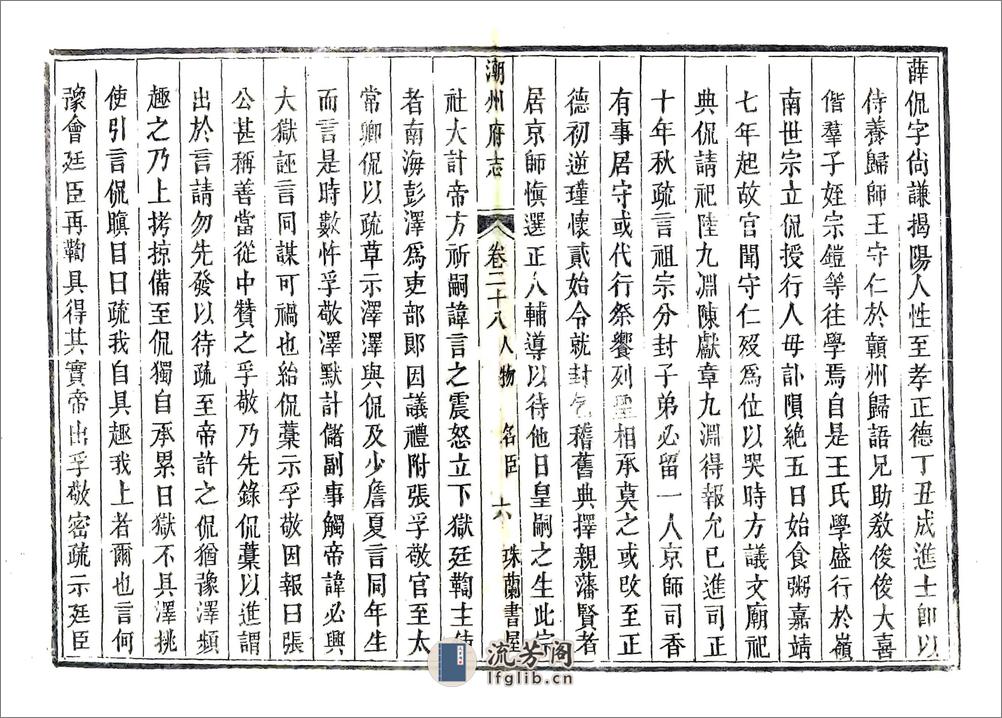 薛侃字尚謙揭陽人性至孝正德丁丑成進士卽以
侍養歸師王守仁於贛州歸語兄助教俊俊大喜
偕羣子姪宗鎧等往學焉自是王氏學盛行於嶺
南世宗立侃授行人母訃隕絶五日始食粥嘉靖
七年起故官聞守仁歿爲位以哭時方議文廟祀
典侃請祀陸九淵陳獻章九淵得報允已進司正
十年秋疏言祖宗分封子弟必留一人京師司香
有事居守或代行祭饗列聖相承莫之或改至正
德初逆瑾懷貳始令就封乞稽舊典擇親藩賢者
居京師愼選正人輔導以待他日皇嗣之生此宗
潮州府志
卷二十八
人物
名臣
六
珠蘭書屋
社大計帝方祈嗣諱言之震怒立下獄廷鞫主使
者南海彭澤爲吏部郎因議禮附張孚敬官至太
常卿侃以疏草示澤澤與侃及少詹夏言同年生
而言是時數忤孚敬澤默計儲副事觸帝諱必興
大獄誣言同謀可禍也紿侃藁示孚敬因報曰張
公甚稱善當從中贊之孚敬乃先錄侃藁以進謂
出於言請勿先發以待疏至帝許之侃猶豫澤頻
趣之乃上拷掠備至侃獨自承累日獄不具澤挑
使引言侃瞋目曰疏我自具趣我上者爾也言何
豫會廷臣再鞫具得其實帝出孚敬密疏示廷臣
流芳阁
lfglib.cn